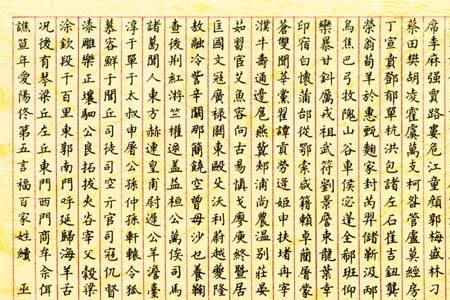 席季麻强賈路婁危江童顏郭梅盛林刁
蔡田樊胡凌霍虞萬支柯昝管盧莫經房
丁宣賁鄧郁單杭洪包諸左石崔吉鈕龔
榮翁荀羊於惠甄麴家封芮羿儲靳汲邴
烏焦巴弓牧隗山谷車侯宓蓬全郗班仰
欒暴甘鈄厲戎祖武符劉景詹束龍葉幸
印宿白懷蒲邰從鄂索咸籍賴卓藺屠蒙
蒼雙聞莘黨翟譚貢勞逄姬申扶堵冉宰
濮牛壽通邊扈燕冀郟浦尚農溫別莊晏
茹習宦艾魚容向古易慎戈廖庾終暨居
匡國文寇廣祿闕東毆殳沃利蔚越夔隆
敖融冷訾辛闞那簡饒空曾毋沙乜養鞠
查後荆紅游竺權逯蓋益桓公萬俟司馬
諸葛聞人東方赫連皇甫尉遲公羊澹臺
淳于單于太叔申屠公孫仲孫軒轅令狐
慕容鮮于閭丘司徒司空亓官司寇仉督
漆雕樂正壤駟公良拓拔夾谷宰父穀梁
涂欽段干百里東郭南門呼延歸海羊舌
況後有琴梁丘左丘東門西門商牟佘佴
譙笪年愛陽佟第五言福百家姓續 巫